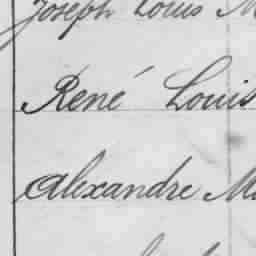 Joseph Louis M
René Louis
Alexandre Ma